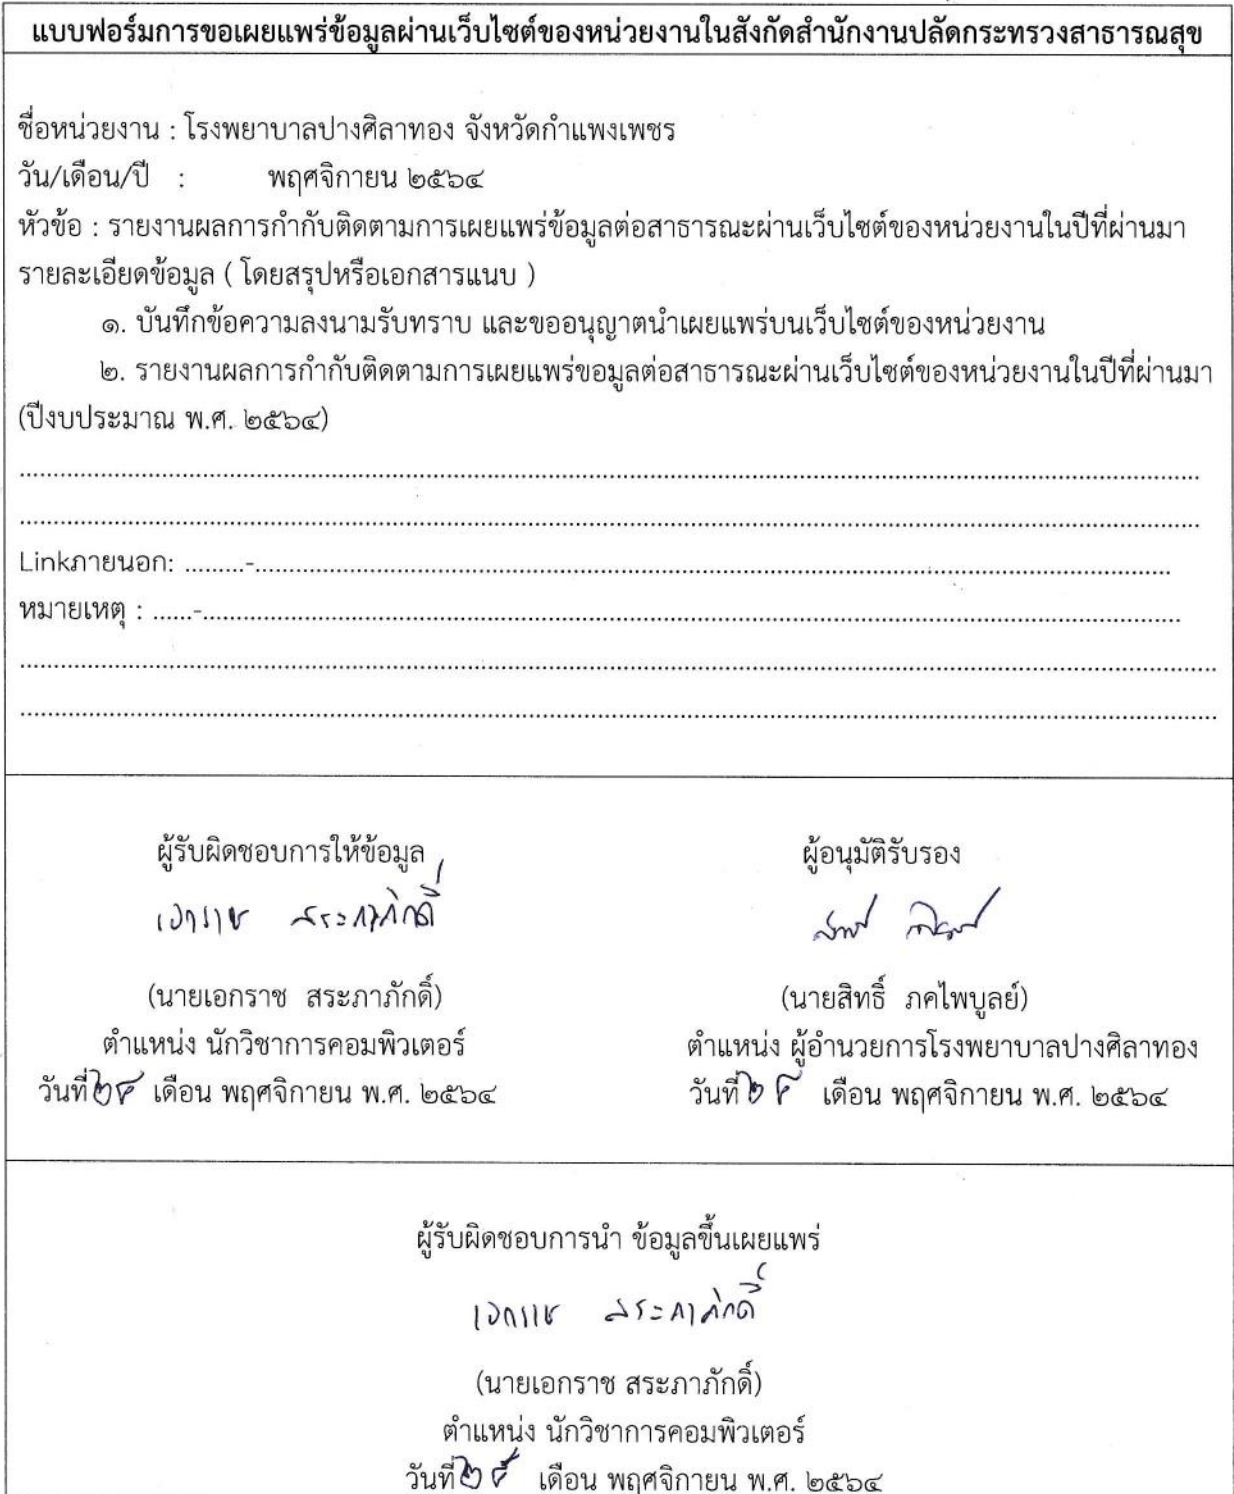 แบบฟอร์มการขอเผยแพร่ข้อมูลผ่านเว็บไซต์ของหน่วยงานในสังกัดสำนักงานปลัดกระทรวงสาธารณสุข
ชื่อหน่วยงาน : โรงพยาบาลปางศิลาทอง จังหวัดกำแพงเพชร
วัน/เดือน/ปี : พฤศจิกายน ๒๕๖๔
หัวข้อ : รายงานผลการกำกับติดตามการเผยแพร่ข้อมูลต่อสาธารณะผ่านเว็บไซต์ของหน่วยงานในปีที่ผ่านมา
รายละเอียดข้อมูล ( โดยสรุปหรือเอกสารแนบ )
๑. บันทึกข้อความลงนามรับทราบ และขออนุญาตนำเผยแพร่บนเว็บไซต์ของหน่วยงาน
๒. รายงานผลการกำกับติดตามการเผยแพร่ขอมูลต่อสาธารณะผ่านเว็บไซต์ของหน่วยงานในปีที่ผ่านมา
(ปีงบประมาณ พ.ศ. ๒๕๖๔)
Linkภายนอก: .........-.........
หมายเหตุ : ......-.........
ผู้รับผิดชอบการให้ข้อมูล ผู้อนุมัติรับรอง
เอกราช สระภาภักดิ์
(นายเอกราช สระภาภักดิ์) (นายสิทธิ์ ภคไพบูลย์)
ตำแหน่ง นักวิชาการคอมพิวเตอร์ ตำแหน่ง ผู้อำนวยการโรงพยาบาลปางศิลาทอง
วันที่ เดือน พฤศจิกายน พ.ศ. ๒๕๖๔ วันที่ เดือน พฤศจิกายน พ.ศ. ๒๕๖๔
ผู้รับผิดชอบการนำ ข้อมูลขึ้นเผยแพร่
เอกราช สระภาภักดิ์
(นายเอกราช สระภาภักดิ์)
ตำแหน่ง นักวิชาการคอมพิวเตอร์
วันที่ เดือน พฤศจิกายน พ.ศ. ๒๕๖๔